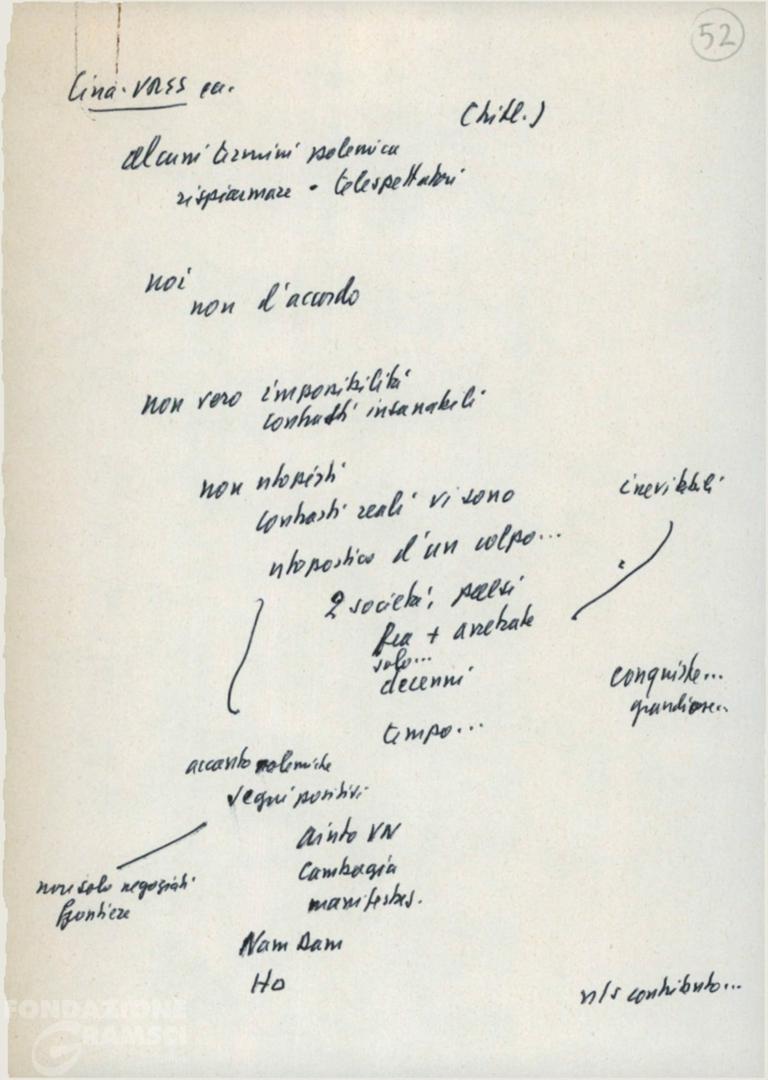 52
Cina-URSS ecc.
(Hitl.)
alcuni termini polemica
risparmare • telespettatori
noi
non d'accordo
non vero impossibilità
contrasti insanabili
non utopisti
contrasti reali vi sono
inevitabili
utopistico d'un colpo...
2 società, paesi
fra + arretrate
solo...
decenni
conquiste...
grandiose...
tempo...
accanto polemiche
segni positivi
aiuto VN
Cambogia
non solo negoziati
frontiere
manifestaz.
Nam Dam
Ho
n/s contributo...
FONDAZIONE
GRAMSCI